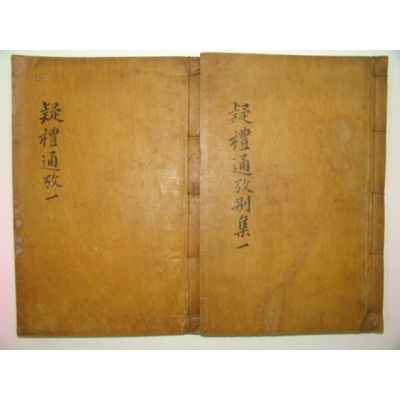 疑禮通攷一
疑禮通攷别集一